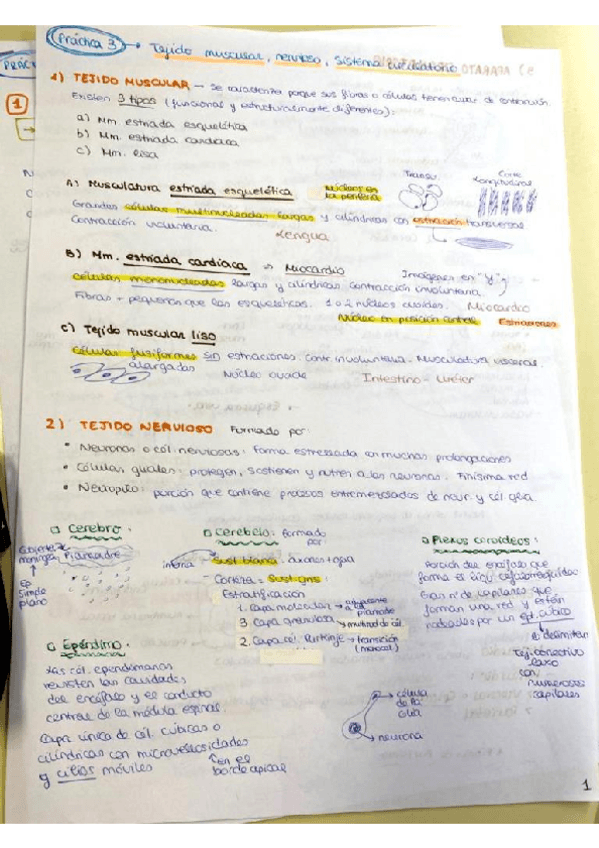 Práctica 3 → Tejido muscular, nervioso, sistema circulatorio
PRÁCT
1
1) TEJIDO MUSCULAR — Se caracteriza porque sus fibras o células tienen capac. de contracción.
Existen 3 tipos (funcional y estructuralmente diferentes):
a) Mm. estriada esquelética
b) Mm. estriada cardiaca
c) Mm. lisa
A) Musculatura estriada esquelética
Núcleos en la periferia
Transv.
Corte longitudinal
Grandes células multinucleadas largas y cilíndricas con estriación transversal
Contracción voluntaria.
Lengua
B) Mm. estriada cardíaca → Miocardio
Imágenes en "Y"
células mononucleadas largas y cilíndricas. Contracción involuntaria.
Fibras + pequeñas que las esqueléticas. 1 o 2 núcleos ovoides. Miocardio
Núcleo en posición central
Estriaciones
C) Tejido muscular liso
células fusiformes sin estriaciones. Contr involuntaria. Musculatura visceral.
alargadas
Núcleo ovoide
Intestino - Uréter
2) TEJIDO NERVIOSO Formado por:
• Neuronas o cél. nerviosas: forma estrellada con muchas prolongaciones
• Células gliales: protegen, sostienen y nutren a las neuronas. Finísima red
• Neuropilo: porción que contiene procesos entremezclados de neur. y cél glia.
□ Cerebro:
Piamadre
↓
Ep simple plano
□ Cerebelo: formado por:
interna
Sust blanca: axones + glia
- Corteza = Sust gris:
Estratificación
1. Capa molecular → adyacente a la piamadre
3 Capa granulosa → multitud de cél
2. Capa cél. Purkinje → transición (monocel.)
□ Plexos coroideos:
Porción del encéfalo que
forma el líqu cefalorraquídeo
Gran nº de capilares que
forman una red y están
rodeados por un ep. cúbico
delimitan
Tej. conectivo
laxo
con
numerosos
capilares
□ Epéndimo:
Las cél. ependimarias
revisten las cavidades
del encéfalo y el conducto
central de la médula espinal.
Capa única de cél. cúbicas o
cilíndricas con microvellosidades
y cilios móviles
con el
borde apical
→ célula
de la
Glia
→ neurona
1